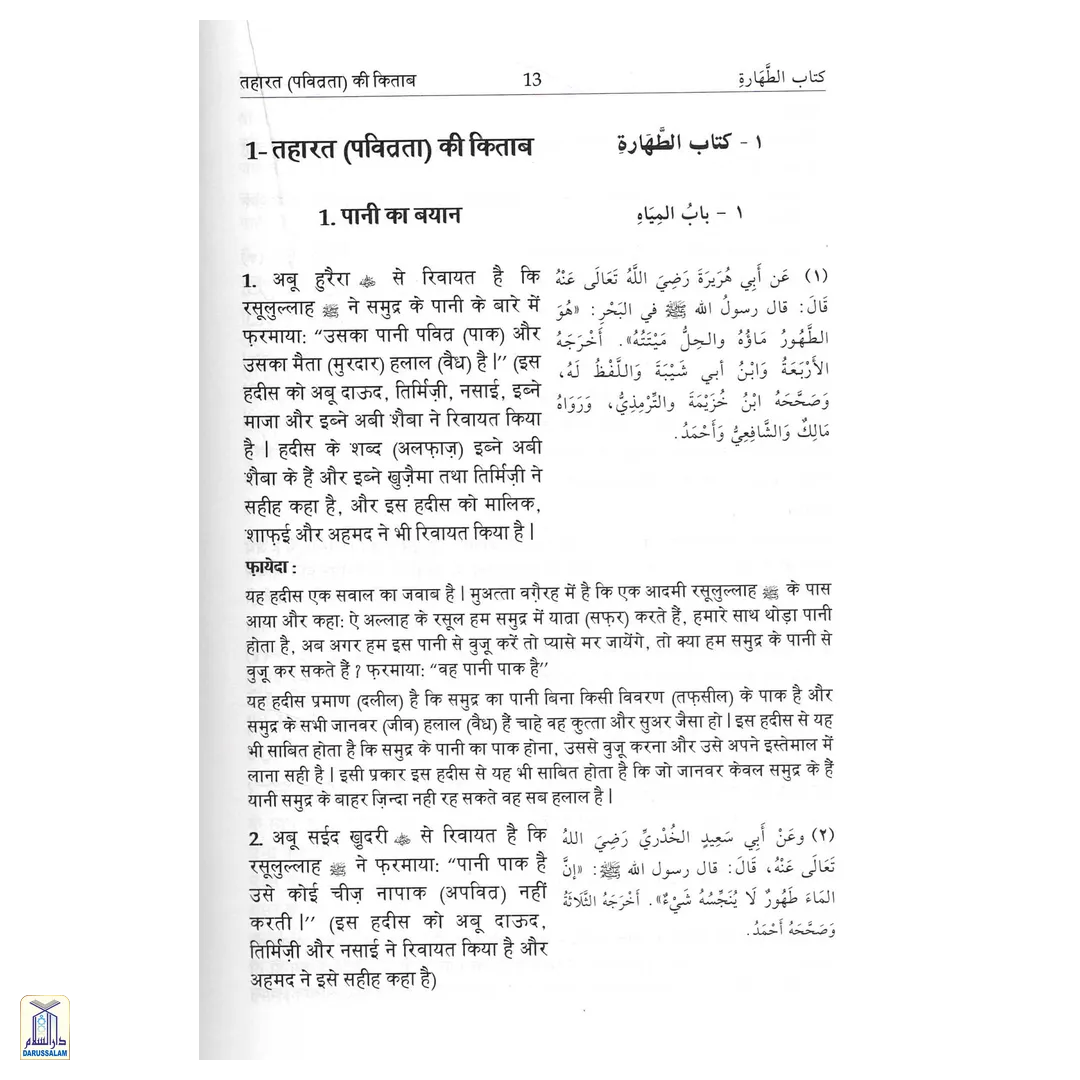 तहारत (पवित्रता) की किताब 13 كتاب الطَّهَارةِ
1- तहारत (पवित्रता) की किताब
١ - كتاب الطَّهَارةِ
1. पानी का बयान
١ - بابُ المِيَاهِ
1. अबू हुरैरा ؓ से रिवायत है कि
रसूलुल्लाह ﷺ ने समुद्र के पानी के बारे में
फ़रमाया: “उसका पानी पवित्र (पाक) और
उसका मैता (मुरदार) हलाल (वैध) है।” (इस
हदीस को अबू दाऊद, तिर्मिज़ी, नसाई, इब्ने
माजा और इब्ने अबी शैबा ने रिवायत किया
है। हदीस के शब्द (अलफ़ाज़) इब्ने अबी
शैबा के हैं और इब्ने खुज़ैमा तथा तिर्मिज़ी ने
सहीह कहा है, और इस हदीस को मालिक,
शाफ़ई और अहमद ने भी रिवायत किया है।
(١) عَن أَبِي هُرَيرَةَ رَضِيَ اللَّهُ تَعَالَى عَنْهُ
قَالَ: قال رسولُ الله ﷺ في البَحْرِ: «هُوَ
الطَّهُورُ مَاؤُهُ والحِلُّ مَيْتَتُهُ». أَخْرَجَهُ
الأَرْبَعَةُ وَابْنُ أبي شَيْبَةَ وَاللَّفْظُ لَهُ،
وَصَحَّحَهُ ابْنُ خُزَيْمَةَ والتِّرْمِذِيُّ، وَرَوَاهُ
مَالِكٌ وَالشَّافِعِيُّ وَأَحْمَدُ.
फ़ायेदा :
यह हदीस एक सवाल का जवाब है। मुअत्ता वग़ैरह में है कि एक आदमी रसूलुल्लाह ﷺ के पास
आया और कहा: ऐ अल्लाह के रसूल हम समुद्र में यात्रा (सफ़र) करते हैं, हमारे साथ थोड़ा पानी
होता है, अब अगर हम इस पानी से वुजू करें तो प्यासे मर जायेंगे, तो क्या हम समुद्र के पानी से
वुजू कर सकते हैं? फ़रमाया: “वह पानी पाक है”
यह हदीस प्रमाण (दलील) है कि समुद्र का पानी बिना किसी विवरण (तफ़सील) के पाक है और
समुद्र के सभी जानवर (जीव) हलाल (वैध) हैं चाहे वह कुत्ता और सुअर जैसा हो। इस हदीस से यह
भी साबित होता है कि समुद्र के पानी का पाक होना, उससे वुजू करना और उसे अपने इस्तेमाल में
लाना सही है। इसी प्रकार इस हदीस से यह भी साबित होता है कि जो जानवर केवल समुद्र के हैं
यानी समुद्र के बाहर ज़िन्दा नही रह सकते वह सब हलाल है।
2. अबू सईद खुदरी ؓ से रिवायत है कि
रसूलुल्लाह ﷺ ने फ़रमाया: “पानी पाक है
उसे कोई चीज़ नापाक (अपवित्र) नहीं
करती।” (इस हदीस को अबू दाऊद,
तिर्मिज़ी और नसाई ने रिवायत किया है और
अहमद ने इसे सहीह कहा है)
(٢) وعَنْ أَبِي سَعِيدٍ الخُدْرِيِّ رَضِيَ اللهُ
تَعَالَى عَنْهُ، قَالَ: قال رسول الله ﷺ: «إنَّ
المَاءَ طَهُورٌ لَا يُنَجِّسُهُ شَيْءٌ». أخْرَجَهُ الثَّلَاثَةُ
وَصَحَّحَهُ أَحْمَدُ.
دارالسلام
DARUSSALAM